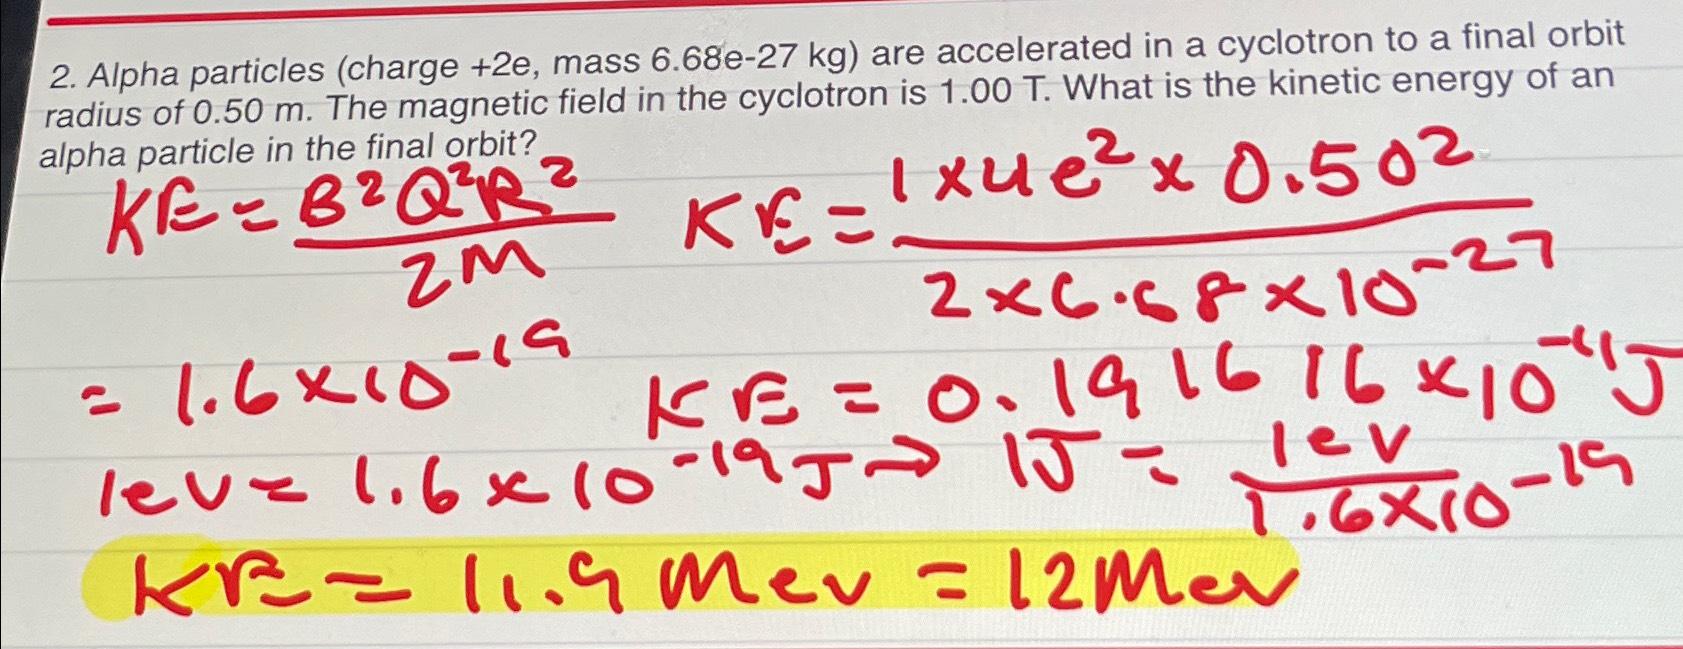 2. Alpha particles (charge +2e, mass 6.68e-27 kg) are accelerated in a cyclotron to a final orbit
radius of 0.50 m. The magnetic field in the cyclotron is 1.00 T. What is the kinetic energy of an
alpha particle in the final orbit?
KE = B²Q²R² / 2M
KE = 1 x 4e² x 0.50² / 2 x 6.68 x 10⁻²⁷
= 1.6 x 10⁻¹⁹
KE = 0.191616 x 10⁻¹¹ J
1ev = 1.6 x 10⁻¹⁹ J → 1J = 1ev / 1.6 x 10⁻¹⁹
KE = 11.9 Mev = 12 Mev